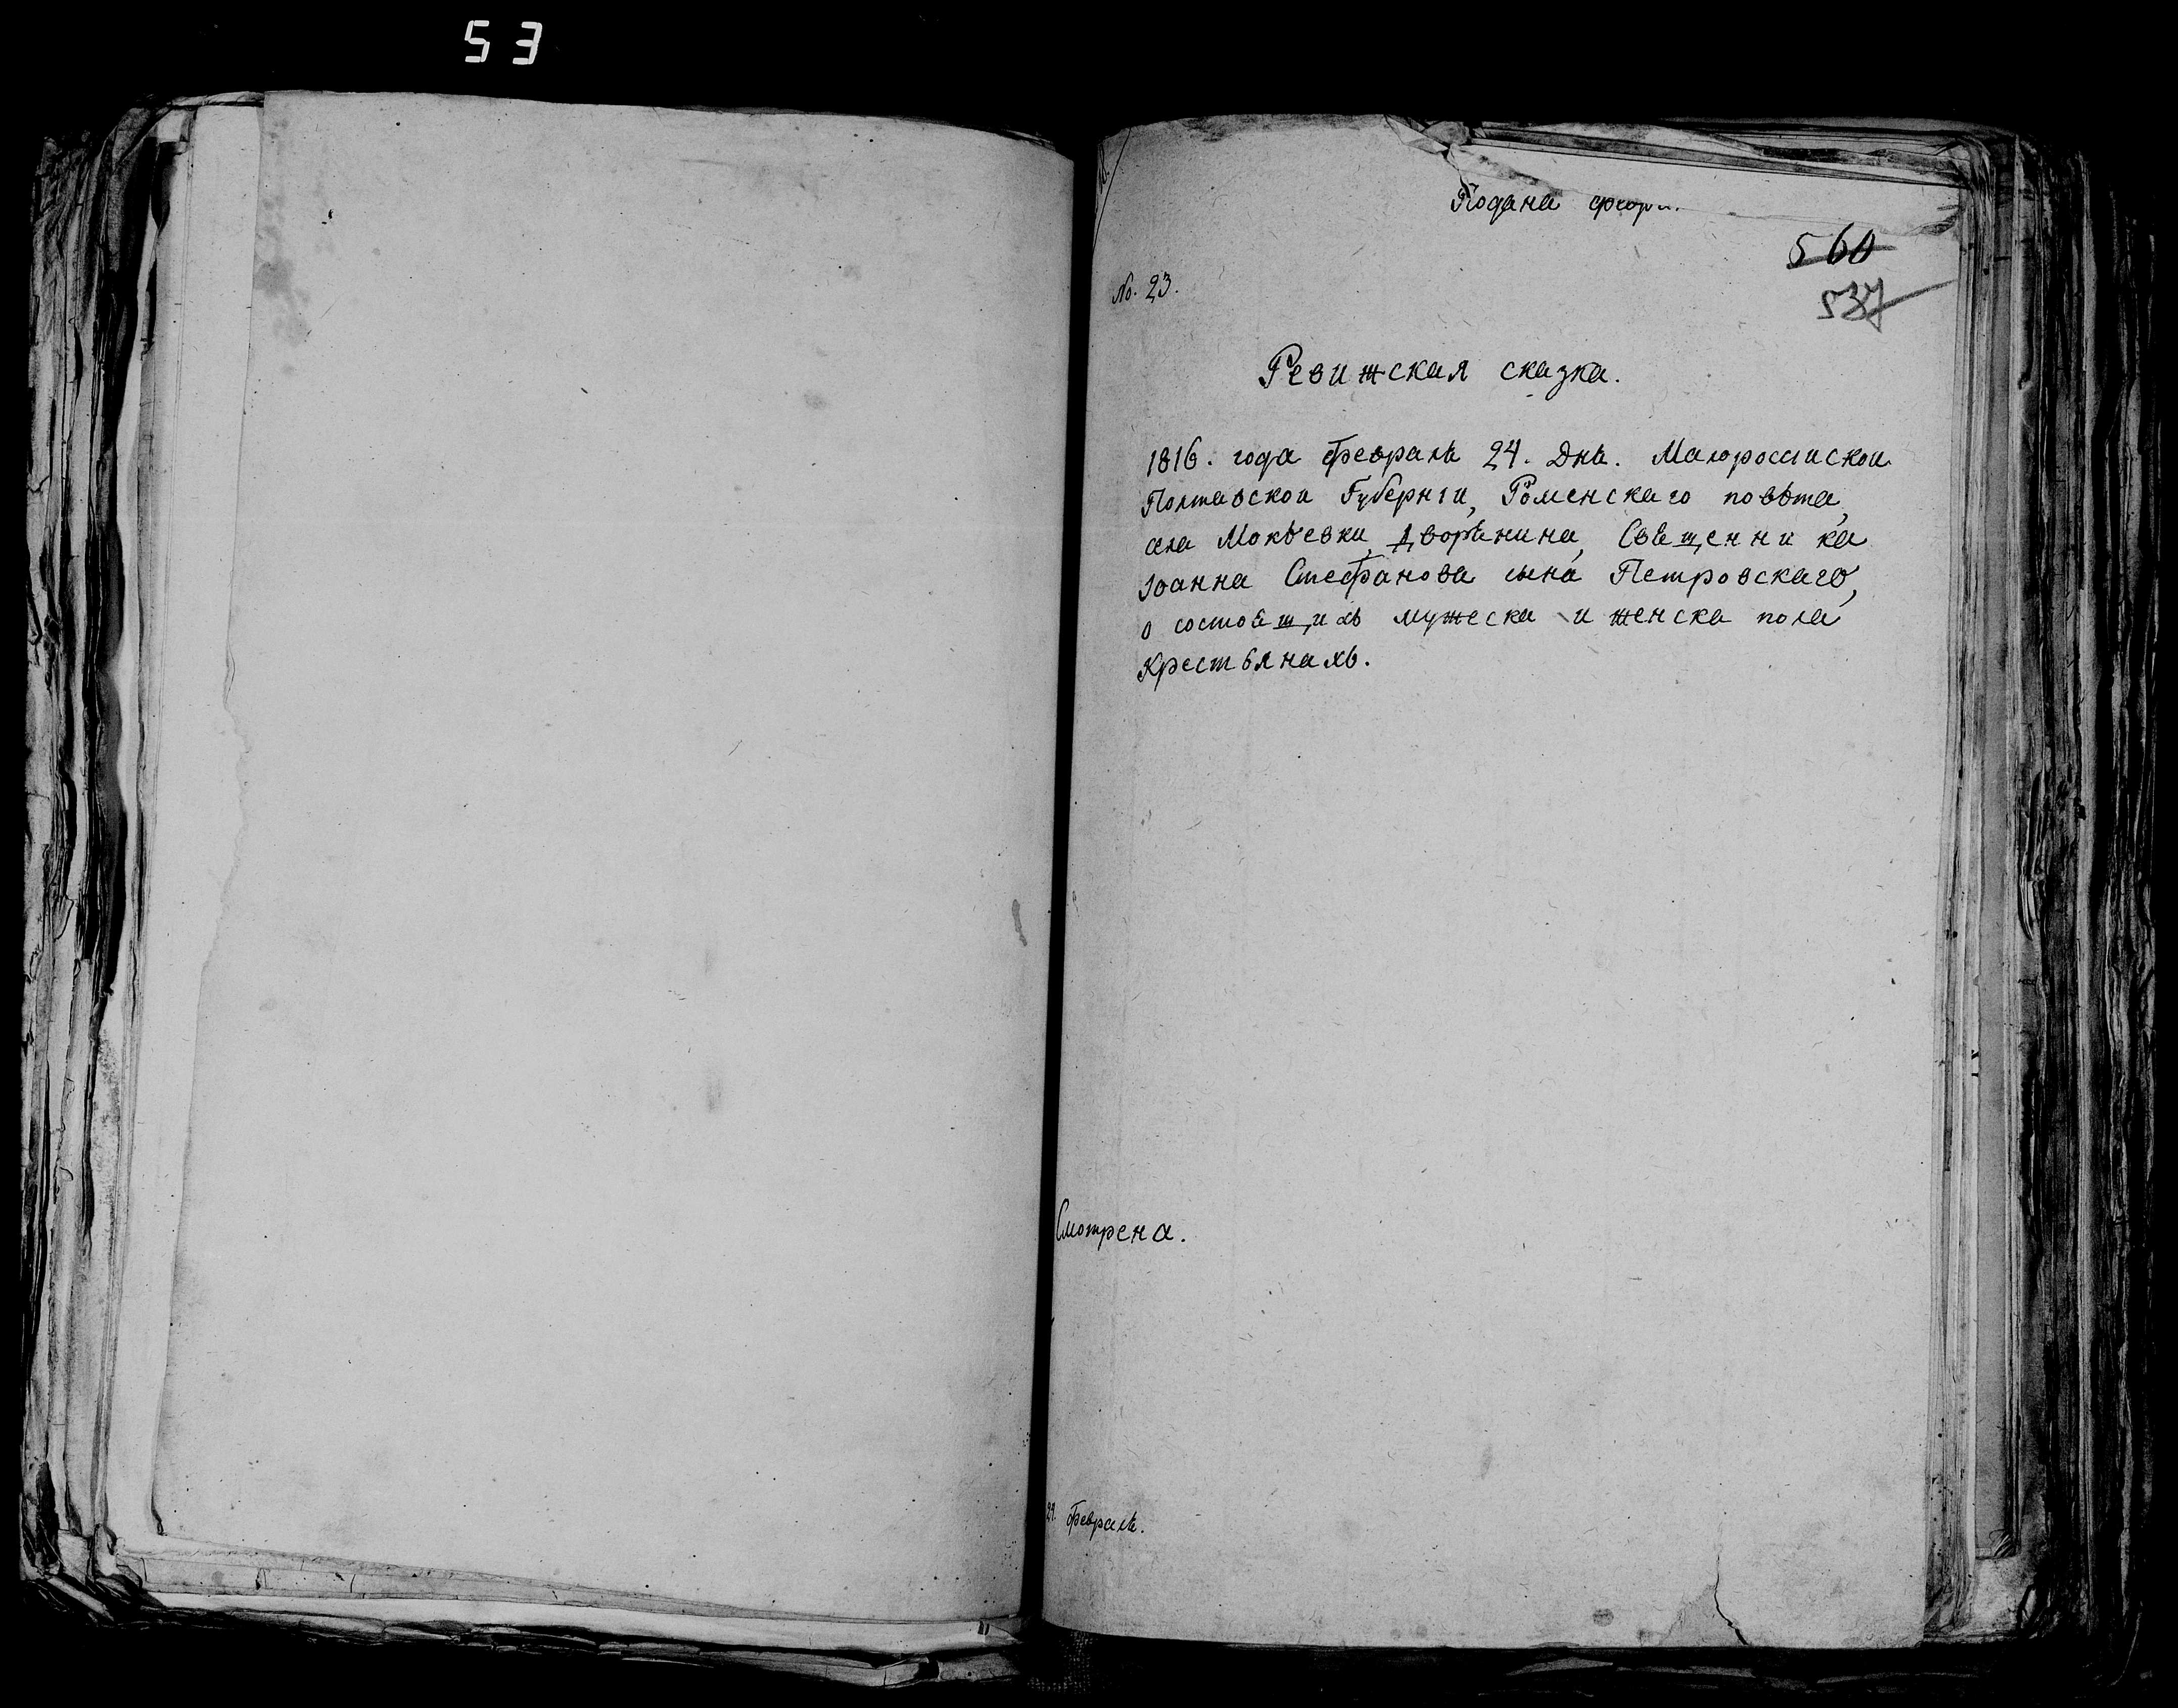 53
Подана
560
No. 23.
537
Ревижская сказка.
1816. года февраля 24. Дня. Малоросшской
Полтавской Губернıи, Роменскаго повѣта,
села Мокѣевки, Дворянина, Священника
Іоанна Стефанова сына Петровскаго,
о состоящихъ мужеска и женска пола
Крестьянахъ.
Смотрена.
февраля.